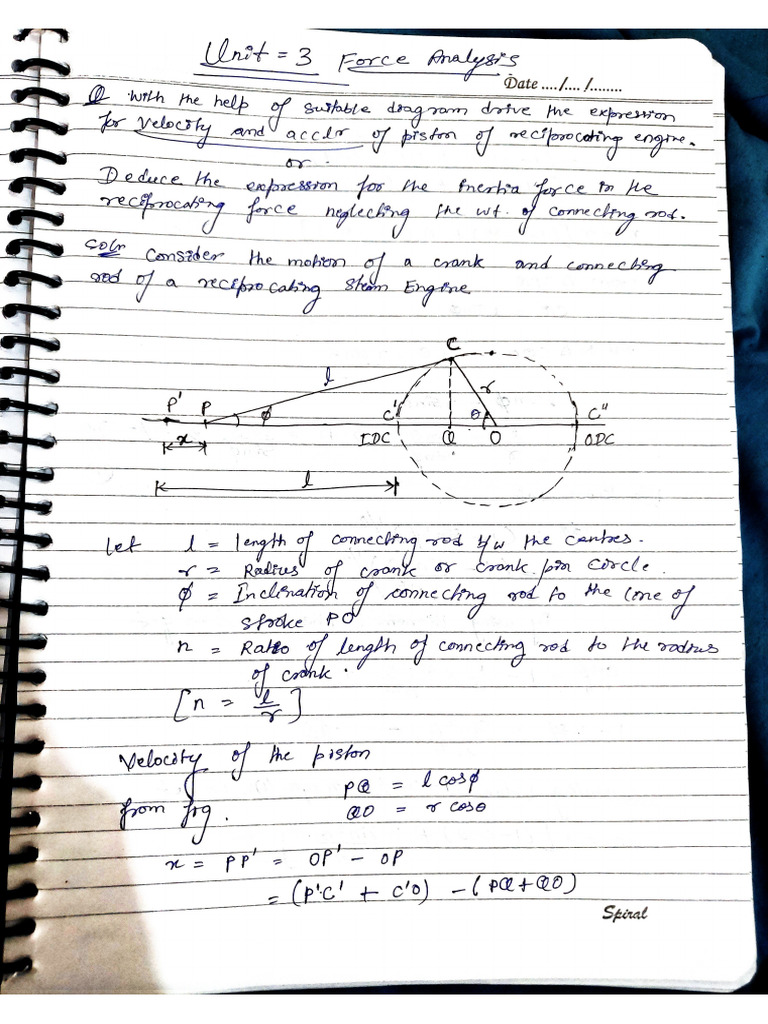 Unit = 3 Force Analysis
Date ..../..../........
Q with the help of suitable diagram drive the expression
for velocity and acclr of piston of reciprocating engine.
or.
Deduce the expression for the Inertia force in the
reciprocating force neglecting the wt. of connecting rod.
Soln Consider the motion of a crank and connecting
rod of a reciprocating steam Engine
C
l
r
P' P ϕ C' θ C"
x IDC Q O ODC
l
Let l = length of connecting rod b/w the centres.
r = Radius of crank or crank pin circle.
ϕ = Inclination of connecting rod to the line of
stroke PO
n = Ratio of length of connecting rod to the radius
of crank.
[n = l/r]
Velocity of the piston
from fig. PQ = l cosϕ
QO = r cosθ
x = PP' = OP' - OP
= (P'C' + C'O) - (PQ+QO)
Spiral